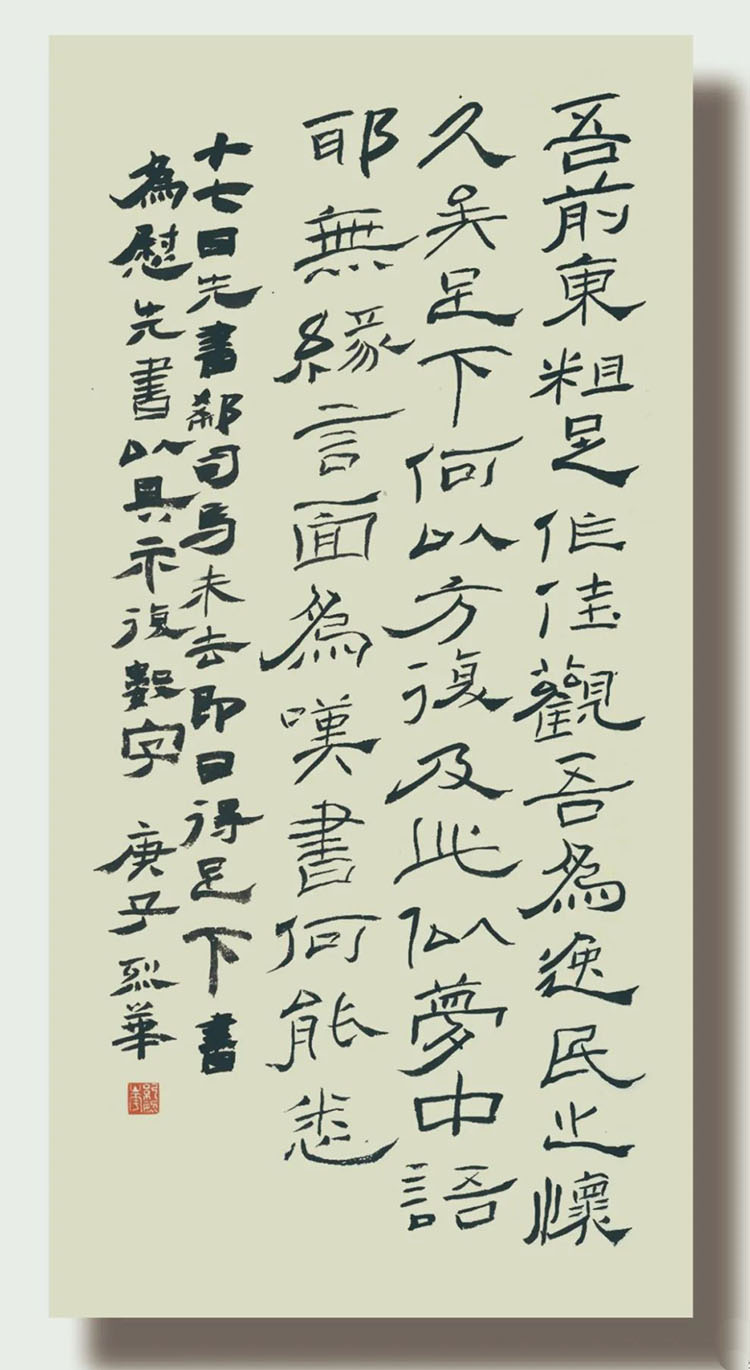 吾前東粗足作佳觀吾為逸民之懷
久矣足下何以方復及此似夢中語
耶無緣言面為嘆書何能悉
十七日先書郗司馬未去即日得足下書
為慰先書以具示復數字 庚子烈華